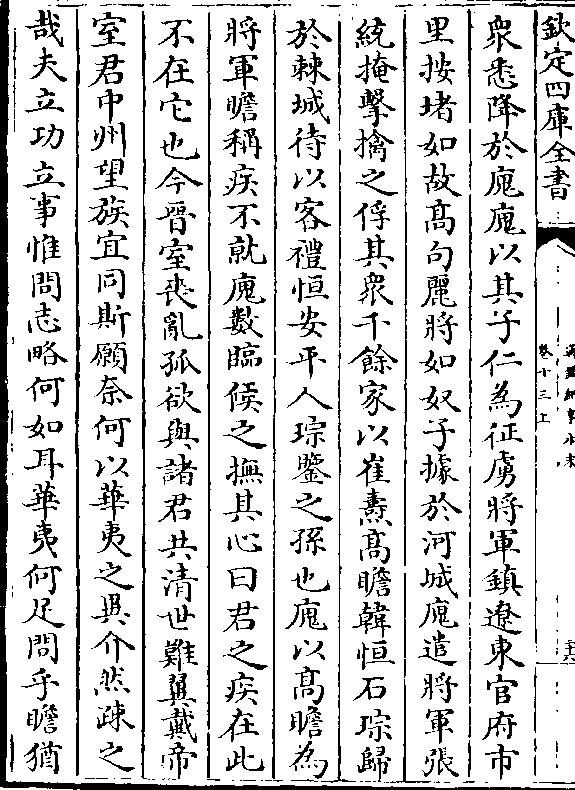 欽定四庫全書
卷十三上
衆悉降於廆廆以其子仁為征虜將軍鎮遼東官府市
里按堵如故高句麗將如奴子據於河城廆遣將軍張
統掩擊擒之俘其衆千餘家以崔燾高瞻韓恒石琮歸
於棘城待以客禮恒安平人琮鑒之孫也廆以高瞻為
將軍瞻稱疾不就廆數臨候之撫其心曰君之疾在此
不在它也今晉室喪亂孤欲與諸君共清世難翼戴帝
室君中州望族宜同斯願奈何以華夷之異介然疎之
哉夫立功立事惟問志略何如耳華夷何足問乎瞻猶